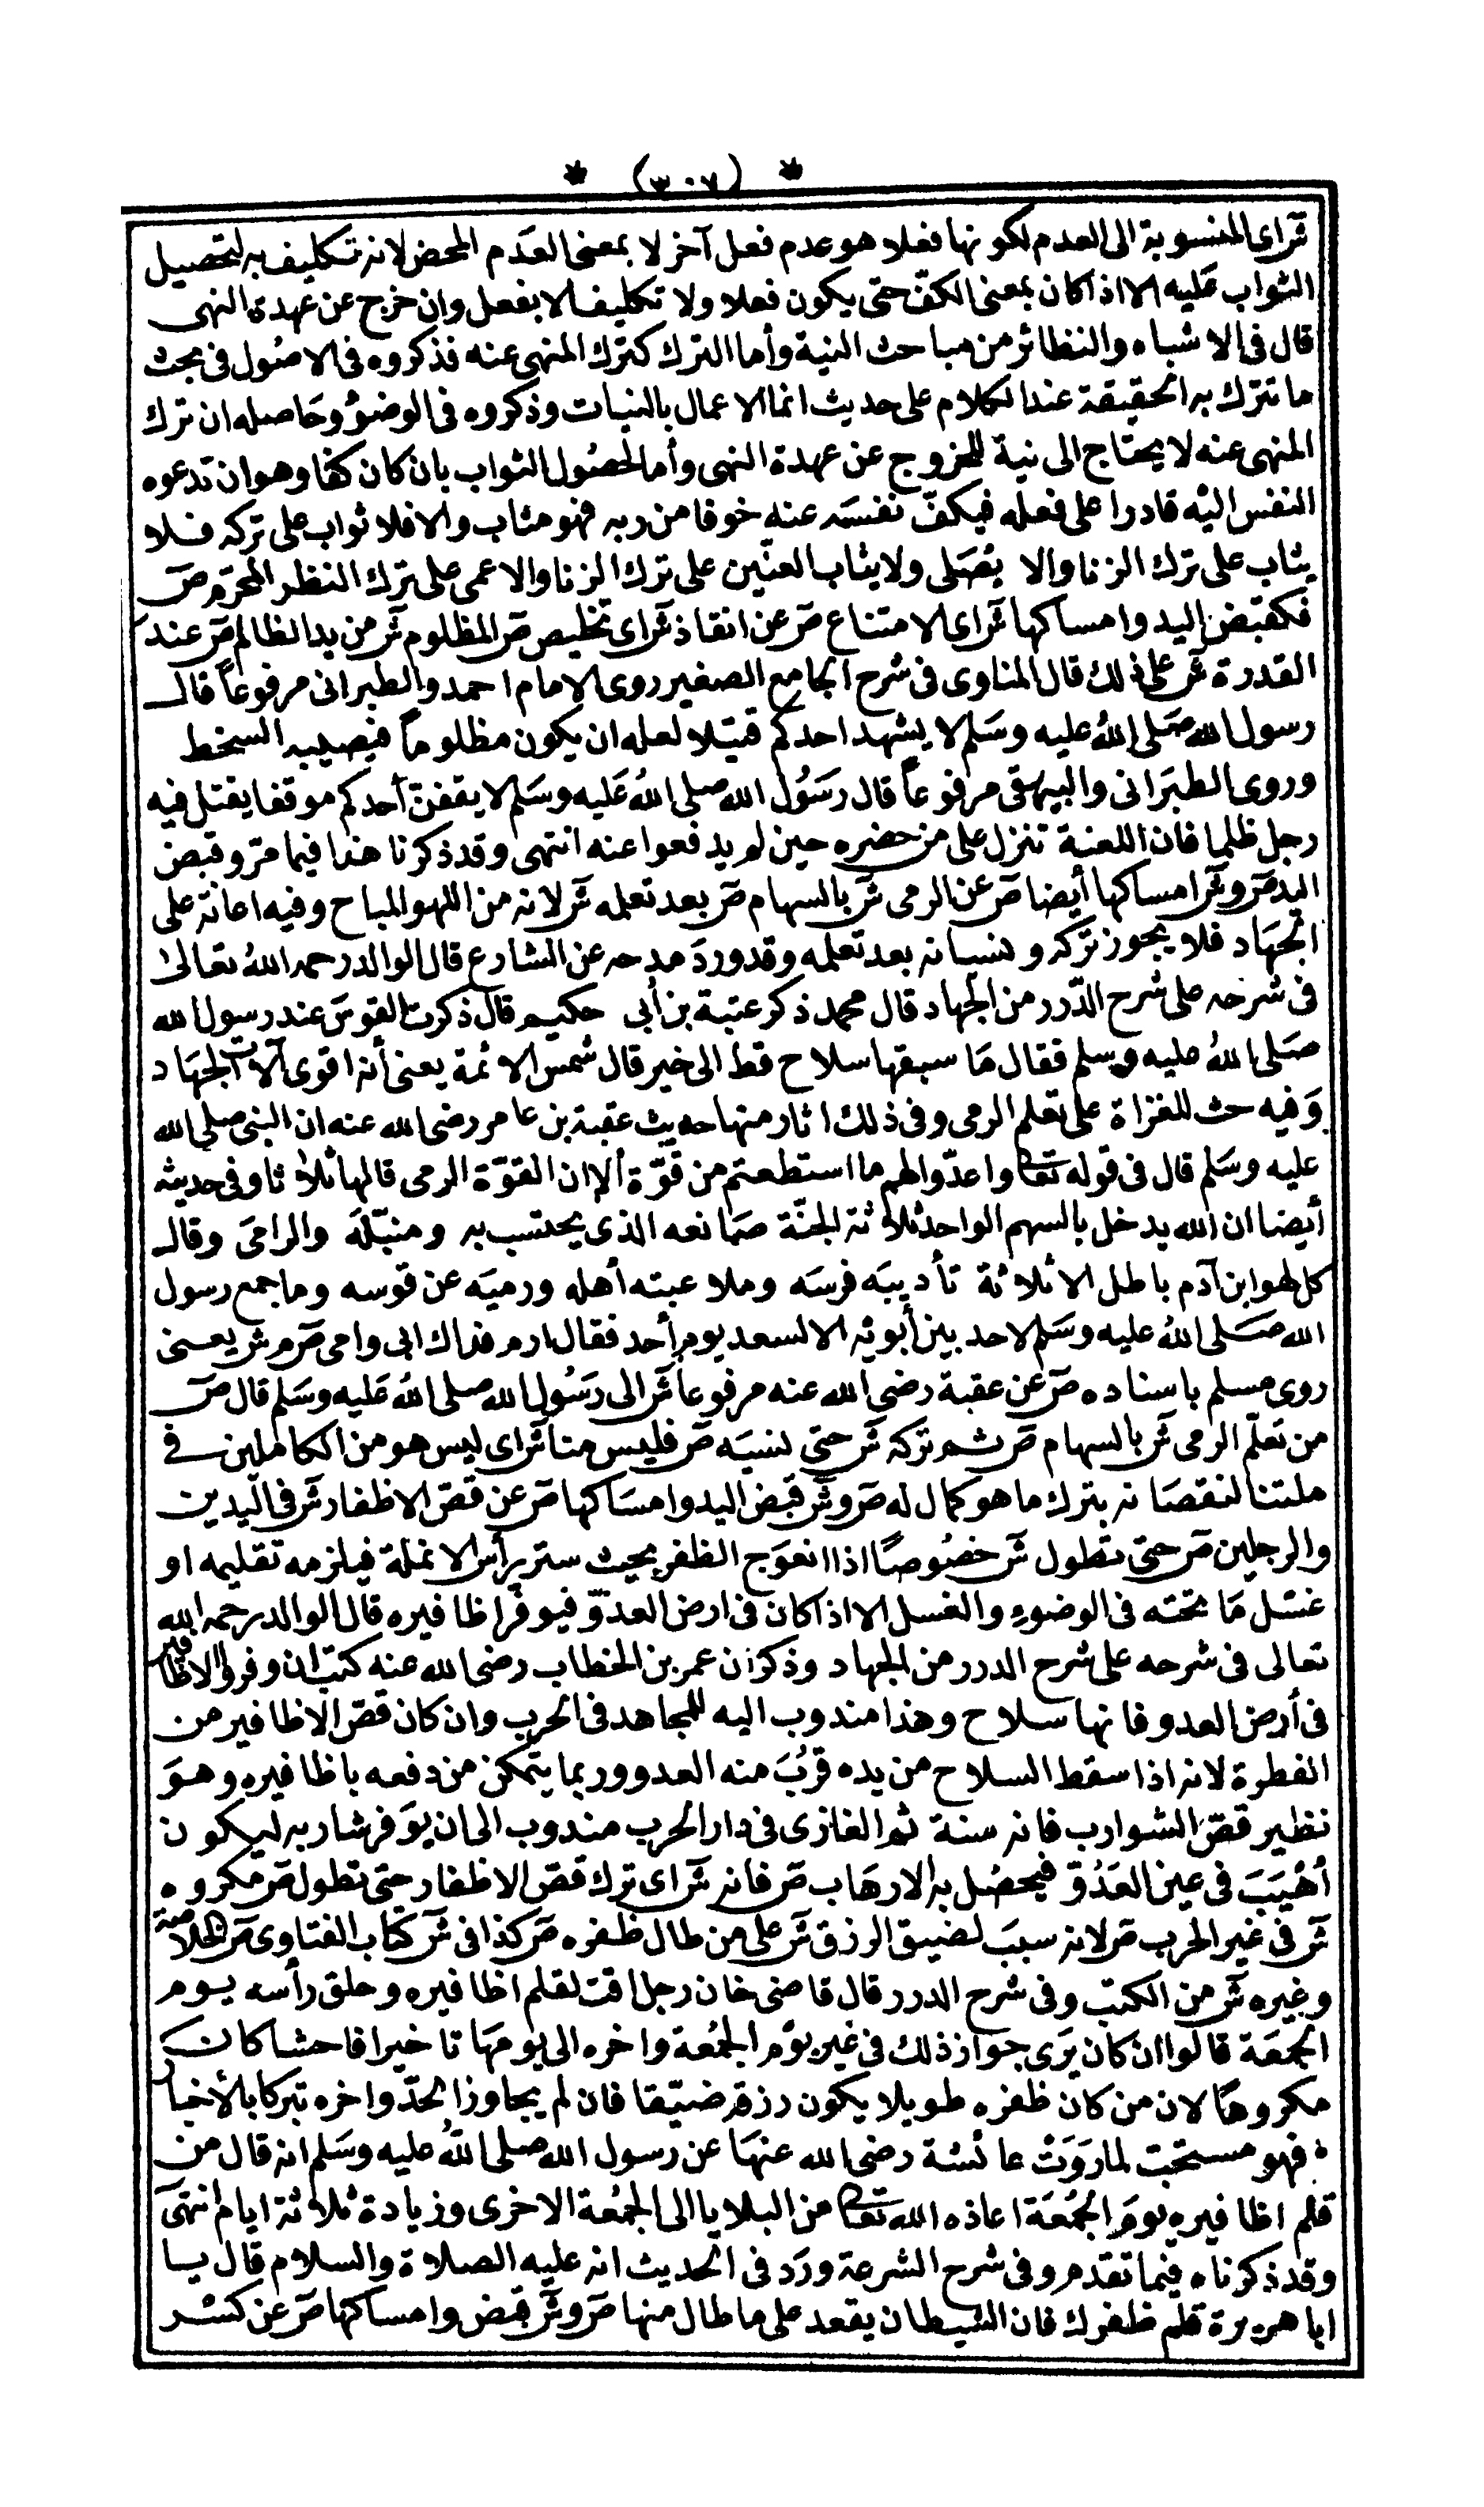 * (٣٠٧) *
ش أى المنسوبة الى العدم لكونها فعلا هو عدم فعل آخر لا بمعنى العَدَم المحض لانه تكليف به لتحصيل
الثواب عَليه الا اذا كان بمعنى الكفّ حتى يكون فعلا ولا تكليف الا بفعل وان خرج عن عهدة النهى
قال فى الاشباه والنظائر من مباحث النية وأما الترك كترك المنهى عنه فذكروه فى الاصُول فى بحث
ما تترك به الحقيقة عند الكلام على حديث انما الاعمال بالنيات وذكروه فى الوضوُ وحَاصله ان ترك
المنهى عنه لا يحتاج الى نية للخروج عن عهدة النهى وأما لحصُول الثواب بان كان كفا وهو ان تدعوه
النفس اليْه قادرا على فعله فيكفّ نفسَه عنه خوفا من ربه فهو مثاب والا فلا ثواب على تركه فلا
يثاب على ترك الزنا والا يصَلى ولا يثاب العنّين على ترك الزنا والاعمى على ترك النظر المحرّم ص
فكقبض اليد وامساكها ش أى الامتناع ص عن انقاذ ش أى تخليص ص المظلوم ش من يد الظالم ص عند
القدرة ش على ذلك قال المناوى فى شرح الجامع الصغير روى الامام احمد والطبرانى مرفوعاً قال
رسول الله صَلى اللهُ عليه وسَلم لا يشهد احدكم قتيلا لعله ان يكون مظلوماً فيصيبه السخط
وروى الطبَرانى والبيهقى مرفوعاً قال رَسُول الله صلى اللهُ عَليه وسَلم لا يقفنّ أحدكم موقفا يقتل فيه
رجل ظلما فان اللعنة تنزل على من حضره حين لم يدفعوا عنه انتهى وقد ذكرنا هذا فيما مرّ وقبض
اليد ص و ش امساكها أيضا ص عن الرمى ش بالسهام ص بعد تعلمه ش لانه من اللهو المباح وفيه اعانة على
الجهَاد فلا يجوز تركه ونسيانه بعد تعلمه وقد وردَ مدحه عن الشارع قال الوالد رحمه اللهُ تعالىٰ
فى شرحه على شرح الدّرر من الجهاد قال محمد ذكر عتبة بن أبى حكيم قال ذكرت القوسَ عند رسول الله
صَلى اللهُ عليه وسلم فقال مَا سبقها سلاح قط الى خير قال شمس الائمة يعنى أنه اقوى آلات الجهَاد
وَفيه حث للغزاة على تعلم الرمى وفى ذلك اثار منها حديث عقبة بن عامر رضى الله عنه ان النبى صلى الله
عليه وسَلم قال فى قوله تعا واعدّوا لهم ما استطعتم من قوّة ألا ان القوّة الرمى قالها ثلاثا وفى حديثه
أيضا ان الله يدخل بالسهم الواحد ثلاثة الجنّة صَانعه الذى يحتسب به ومنبّلَه والرامىَ وقال
كل لهو ابن آدم باطل الا ثلاثة تأديبَه فرسَه وملاعبته أهله ورميَه عن قوسه وما جمع رسول
الله صَلى اللهُ عليه وسَلم لاحد بين أبويْه الا لسعد يوم أحد فقال ارم فداك ابى وامى ص م ش يعنى
روى مسلم باسناده ص عن عقبة رضى الله عنه مرفوعاً ش الى رَسُول الله صلى اللهُ عَليه وسَلم قال ص
من تعلّم الرمى ش بالسهام ص ثم تركه ش حتى نسيَه ص فليس منا ش أى ليس هو من الكاملين فى
ملتنا لنقصَانه بترك ما هو كمال له ص و ش قبض اليد وامسَاكها ص عن قصّ الاظفار ش فى اليدين
والرجلين ص حتى تطول ش خصُوصًا اذا انعوَج الظفر بحيث ستر برأس الانملة فيلزمه تقليمه او
غسْل مَا تحته فى الوضوءِ والغسل الا اذا كان فى ارض العدوّ فيوفر اظافيره قال الوالد رحمه الله
تعالى فى شرحه على شرح الدرر من الجهاد وذكر ان عمر بن الخطاب رضى الله عنه كتب ان وفروا الاظافير
فى أرض العدو فانها سلاح وهذا مندوب اليه للمجاهد فى الحرب وان كان قصّ الاظافير من
الفطرة لانه اذا سقط السلاح من يده قرُبَ منه العدو وربما يتمكن من دفعه باظافيره وهوَ
نظير قصّ الشوارب فانه سنة ثم الغازى فى دار الحرب مندوب الى ان يوَفر شاربه ليكون
أهْيَبَ فى عين العَدُوّ فيحصُل به الارهَاب ص فانه ش أى ترك قصّ الاظفار حتى تطول ص مكروه
ش فى غير الحرب ص لانه سببَ لضيق الرزق ش على من طال ظفره ص كذا فى ش كتاب الفتاوى ص الخلاصة
وغيره ش من الكتب وفى شرح الدرر قال قاضى خان رجل وقت لقلم اظافيره وحلق رأسه يوم
الجمعَة قالوا ان كان يَرى جواز ذلك فى غير يوْم الجمُعة واخره الى يومهَا تاخيرا فاحشا كان
مكروهًا لان من كان ظفره طويلا يكون رزقه ضيّقا فان لم يجاوز الحدّ واخره تبركا بالأخبار
ة فهو مستحَبّ لما رَوَتْ عائشة رضى الله عنهَا عن رسول الله صلى اللهُ عليه وسَلم انه قال من
قلم اظافيره يومَ الجُمُعَة اعاذه الله تعا من البلايا الى الجمُعة الاخرى وزيادة ثلاثة ايام انتهىَ
وقد ذكرناه فيما تقدم وفى شرح الشرعة ورَد فى الحديث انه عليه الصلاة والسلام قال يا
ابا هريرة قلم ظفرك فان الشيطان يقعد على ما طال منها ص و ش قبض وامساكها ص عن كسْر